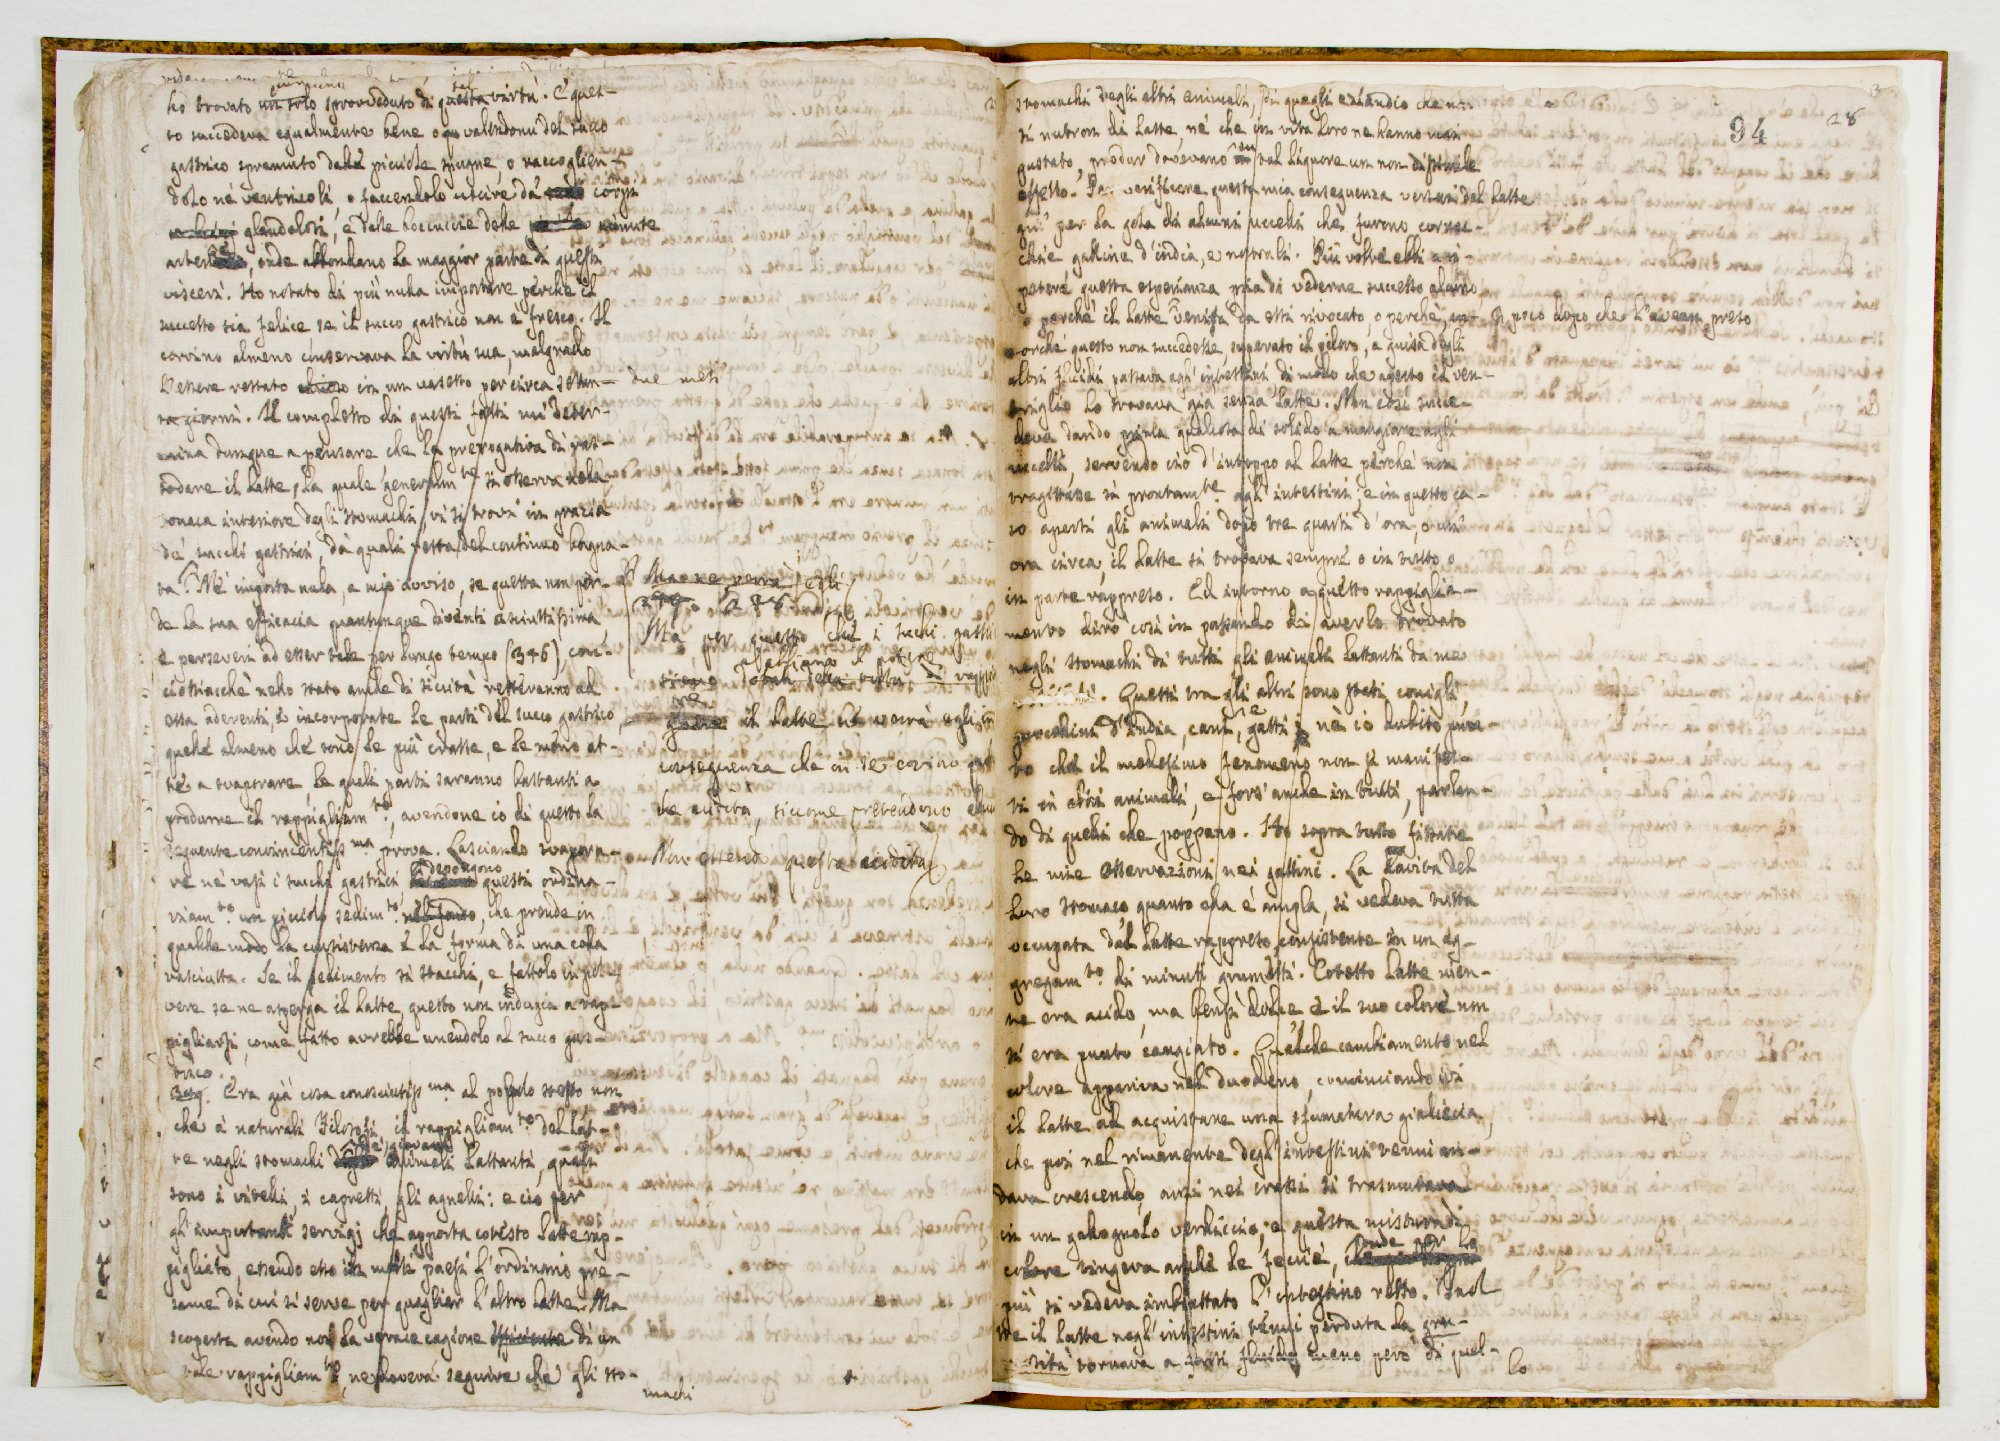 ho trovato un solo sprovveduto di questa virtù. E ques-
to succedeva egualmente bene o valendomi del succo
gastrico spremuto dalle picciole spugne, o raccoglien-
dolo ne' ventricoli, o facendolo uscire da' corpi
glandolosi, e dalle boccuccie delle minute
arterie, onde abbondano la maggior parte di questi
visceri. Ho notato di più nulla importare perchè il
successo sia felice se il succo gastrico non è fresco. Il
corvino almeno conservava la virtù sua, malgrado
l'essere restato chiuso in un vasetto per circa
due mesi
giorni. Il complesso di questi fatti mi deter-
mina dunque a pensare che la prerogativa di ras-
sodare il latte, la quale generalm.te si osserva nella
tonaca interiore degli stomachi, vi si trovi in grazia
de' succhi gastrici, da' quali resta del continuo bagna-
ta. Nè importa nulla, a mio avviso, se questa non per-
de la sua efficacia quantunque diventi asciuttissima
e perseveri ad esser tale per lungo tempo (346), con-
ciossiacchè nello stato anche di siccità resteranno ad
essa aderenti, e incorporate le parti del succo gastrico,
quelle almeno che sono le più crasse, e le meno at-
te a svaporare, le quali parti saranno bastanti a
produrre il rappigliam.to, avendone io di questo la
seguente convincentiss.ma prova. Lasciando svapora-
re ne' vasi i succhi gastrici depongono questi ordina-
riam.te un picciolo sedim.to, che prende in
qualche modo la consistenza e la forma di una colla
rasciutta. Se il sedimento si stacchi, e fattolo in pol-
vere se ne asperga il latte, questo non indugia a rap-
pigliarsi, come fatto avrebbe unendolo al succo gas-
trico.
Ma ne verrà egli
Ma per questo che i succhi gastrici
abbiano il potere
virtù di rappi
il latte ne verrà egli in
conseguenza che in se covino
che acidità, siccome pretendono
Non essendo questa acidità
Era già cosa conosciutiss.ma al popolo stesso non
che a' naturali Filosofi, il rappigliam.to del lat-
te negli stomachi de' giovani animali lattanti, quali
sono i vitelli, i capretti, gli agnelli: e ciò per
gl'importanti servigj che apporta cotesto latte rap-
pigliato, essendo esso in molti paesi l'ordinario pre-
same di cui si serve per quagliar l'altro latte. Ma
scoperta avendo noi la verace cagione efficiente di un
tale rappigliam.to, ne doveva seguire che gli sto-
machi
94
28
stomachi degli altri animali, di quegli eziandio che non
si nutron di latte, nè che in vita loro ne hanno mai
gustato, produr dovevano su tal liquore un non dissimile
effetto. Per verificare questa mia conseguenza versai del latte
giù per la gola di alcuni uccelli che furono cornac-
chie galline d'india, e nostrali. Più volte ebbi a ri-
petere questa esperienza pria di vederne successo alcuno
o perchè il latte veniva da essi rivocato, o perchè, an-
di poco dopo che l'avean preso
corchè questo non succedesse, superato il piloro, a guisa degli
altri fluidi passava agl'intestini di modo che aperto il ven-
triglio lo trovava già senza latte. Non così succe-
deva dando prima qualcosa di solido a mangiare agli
uccelli, servendo ciò d'intoppo al latte perchè non
tragittasse sì prontam.te agl'intestini e in questo ca-
so aperti gli animali dopo tre quarti d'ora, o un'
ora circa, il latte si trovava sempre o in tutto o
in parte rappreso. Ed intorno a questo rappiglia-
mento dirò così in passando di averlo trovato
negli stomachi di tutti gli animali lattanti da me
Questi tra gli altri sono stati conigli,
porcellini d'India, cani, e gatti nè io dubito pun-
to che il medesimo fenomeno non si manifes-
ti in altri animali, e fors'anche in tutti, parlan-
do di quelli che poppano. Ho sopra tutto fissate
le mie osservazioni nei gattini. La cavità del
loro stomaco quanto ella è ampla, si vedeva tutta
occupata dal latte rappreso consistente in un ag-
gregam.to di minuti grumetti. Cotesto latte nien-
te era acido, ma bensì dolce, e il suo colore non
si era punto cangiato. Qualche cambiamento nel
colore appariva nel duodeno, cominciando ivi
il latte ad acquistare una sfumatura gialliccia,
che poi nel rimanente degl'intestini tenui an-
dava crescendo, anzi nei crassi si trasmutava
in un gialognolo verdiccio; e questa mistura di
colore tingeva anche le fecce, onde per lo
più si vedeva imbrattato l'intestino retto. Inol
tre il latte negl'intestini tenui perduta la gru-
tornava a farsi fluido, meno però di quel-
lo